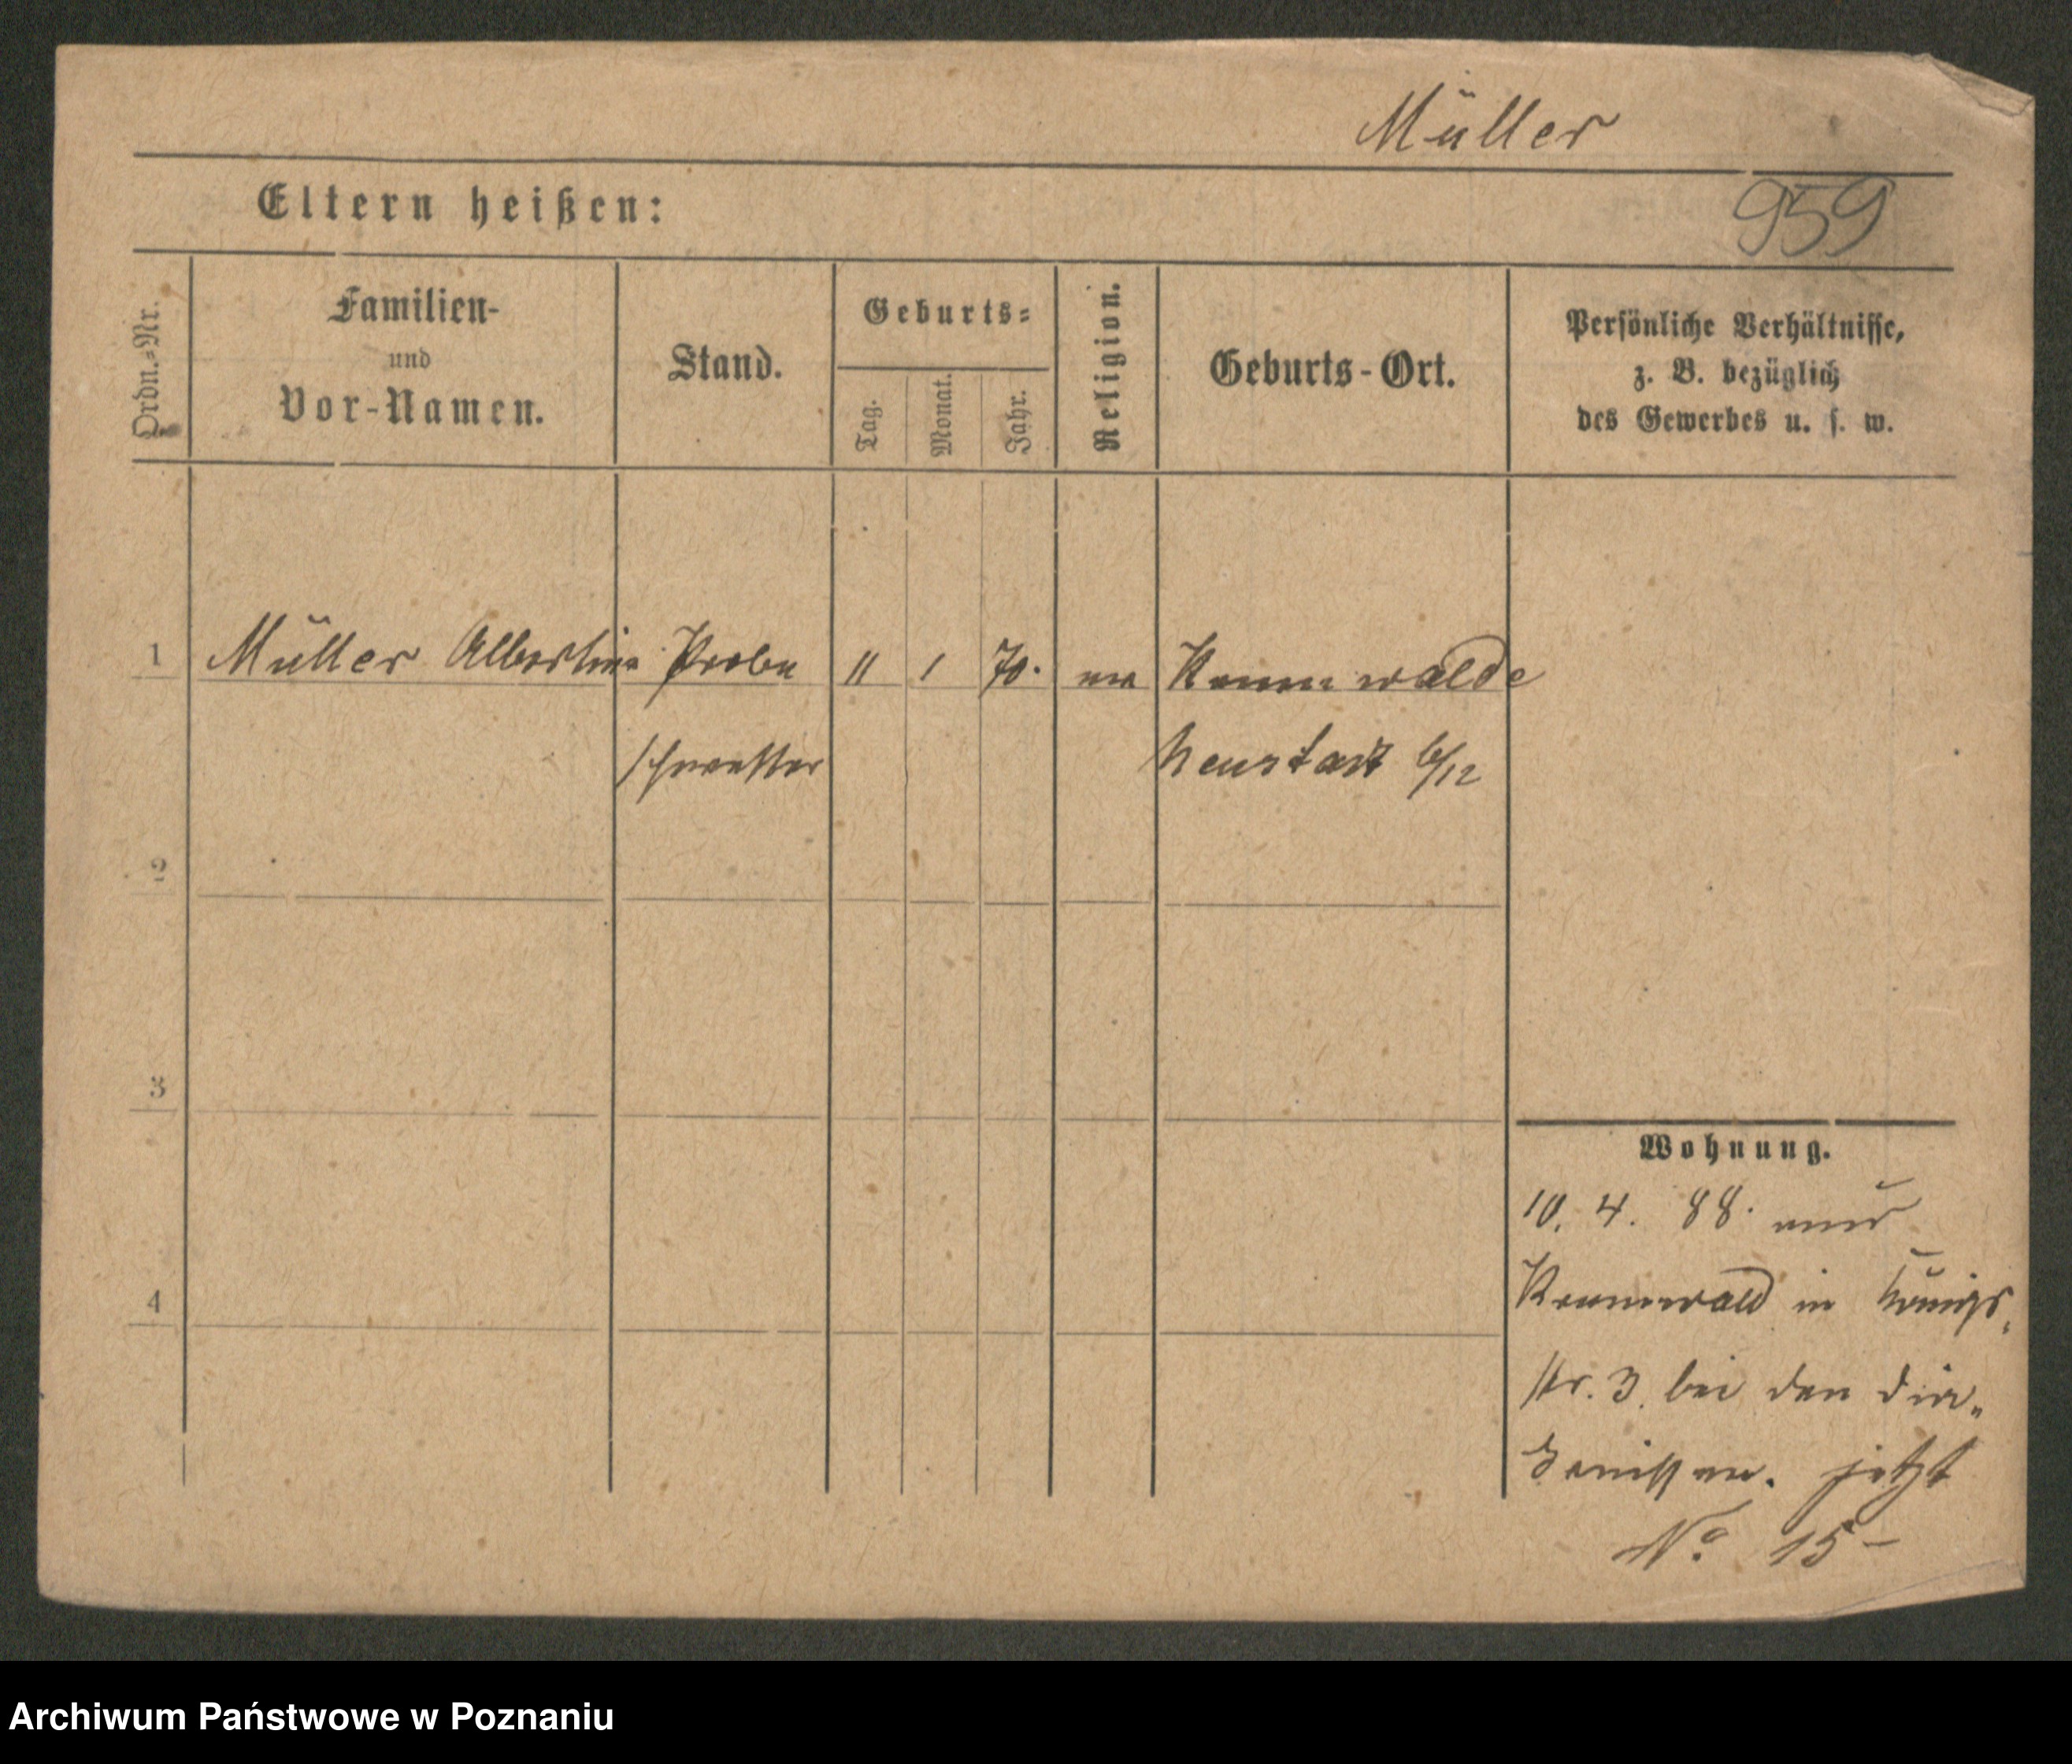 Müller
959
Eltern heißen:
Ordn.-Nr.
Familien-
und
Vor-Namen.
Stand.
Geburts-
Tag.
Monat.
Jahr.
Religion.
Geburts-Ort.
Persönliche Verhältnisse,
z. B. bezüglich
des Gewerbes u. s. w.
1 Müller Albertine Probe 11 1 70.
schwester Neustadt
2
3
4
Wohnung.
10. 4. 88.
in Königs-
str. 3 bei den Dia-
konissen. jetzt
No. 15-
Archiwum Państwowe w Poznaniu